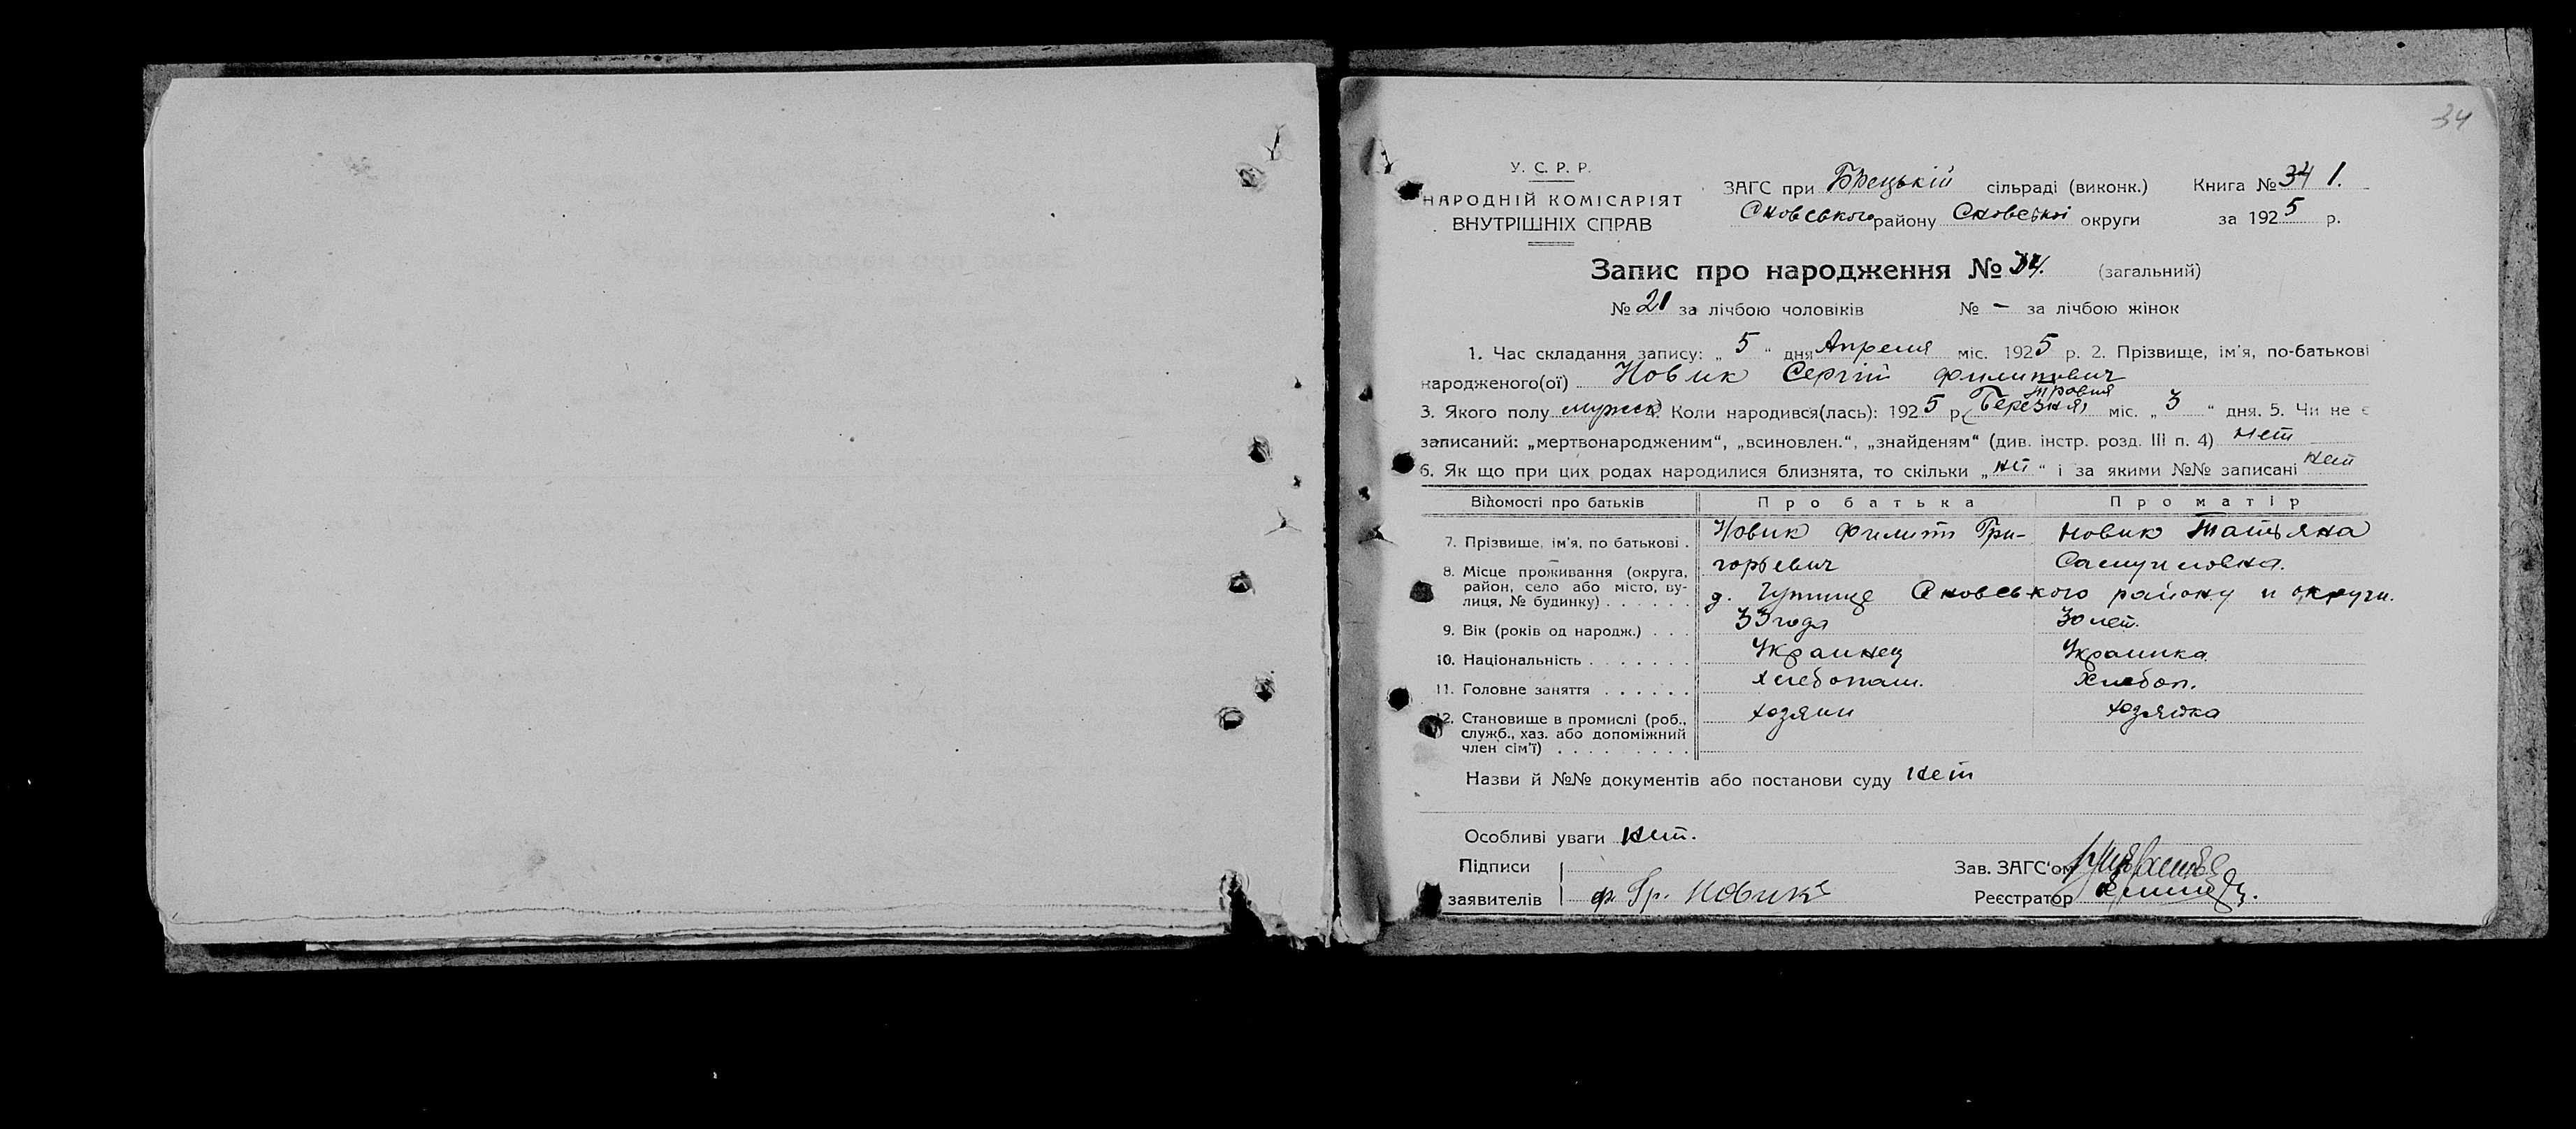 34
У. С. Р. Р.
НАРОДНІЙ КОМІСАРІЯТ
ВНУТРІШНІХ СПРАВ
ЗАГС при Брецькій сільраді (виконк.) Книга № 34 1.
Сновського району Сновської округи за 1925 р.
Запис про народження № 34. (загальний)
№ 21 за лічбою чоловіків № — за лічбою жінок
1. Час складання запису: „ 5 “ дня Апреля міс. 1925 р. 2. Прізвище, ім'я, по-батькові
народженого(ої) Новик Сергій Филипович
травня
3. Якого полу мужск 4. Коли народився(лась): 1925 р. (Березня) міс. „ 3 “ дня. 5. Чи не є
записаний: „мертвонародженим“, „всиновлен.“, „знайденям“ (див. інстр. розд. III п. 4) нет
6. Як що при цих родах народилися близнята, то скільки „ нет “ і за якими №№ записані нет
Відомості про батьків Про батька Про матір
7. Прізвище, ім'я, по батькові . Новик Филипп Гри- Новик Татьяна
горьевич Самуиловна.
8. Місце проживання (округа,
район, село або місто, ву-
лиця, № будинку) . . . . . . д. Гутище Сновського району и округи.
9. Вік (років од народж.) . . . 33 года 30 лет.
10. Національність . . . . . . . Украинец Украинка
11. Головне заняття . . . . . . Хлебопаш. Хлебоп.
12. Становище в промислі (роб.,
служб., хаз. або допоміжний
член сім'ї) . . . . . . . . . хозяин хозяйка
Назви й №№ документів або постанови суду нет
Особливі уваги нет.
Підписи Зав. ЗАГС'ом
заявителів ф. Гр. Новик Реєстратор